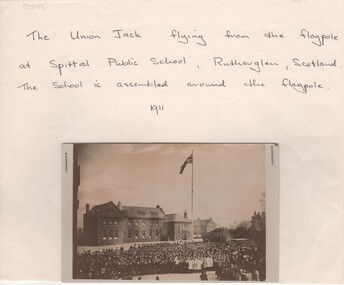 The Union Jack flying from the flagpole
at Spittal Public School, Rutherglen, Scotland.
The School is assembled around the flagpole.
1911